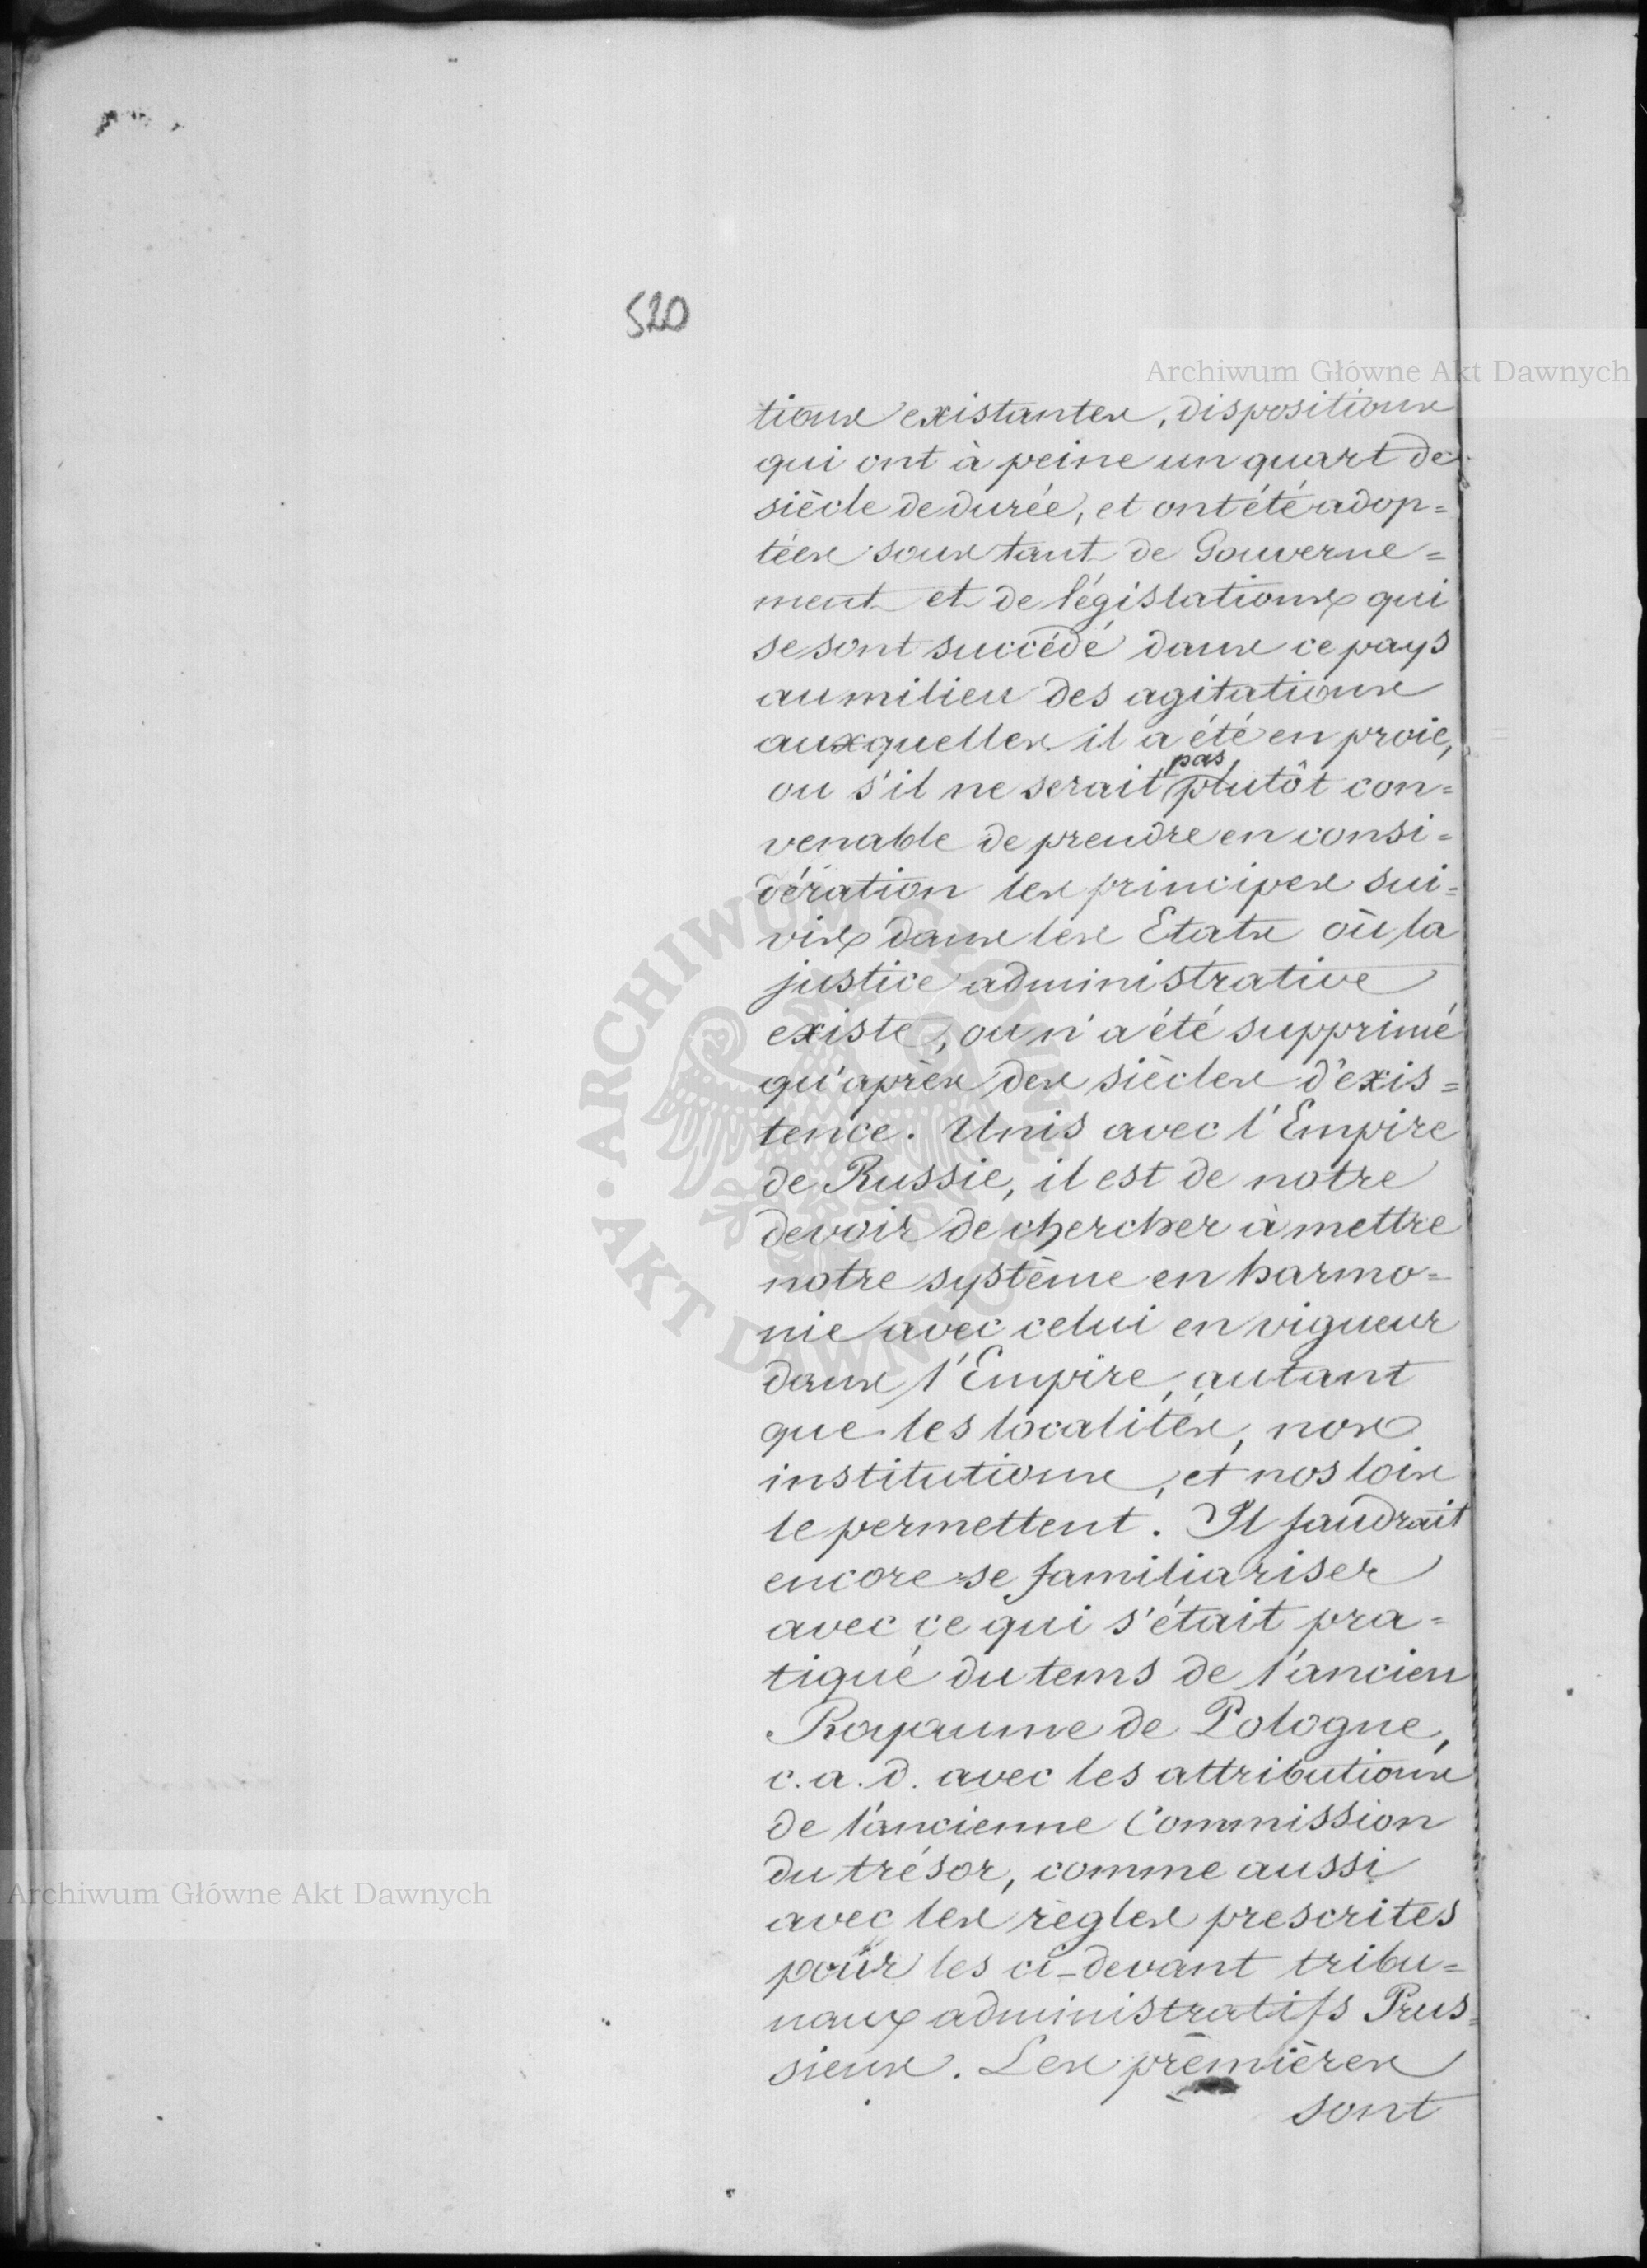 520
Archiwum Główne Akt Dawnych
tions existantes, dispositions
qui ont à peine un quart de
siècle de durée, et ont été adop=
tées sous tant de Gouverne=
ment et de législations qui
se sont succédé dans ce pays
au milieu des agitations
auxquelles il a été en proie,
ou s'il ne serait pas plutôt con=
venable de prendre en consi=
dération les principes sui=
vis dans les Etats où la
justice administrative
existe, ou n'a été supprimé
qu'après des siècles d'exis=
tence. Unis avec l'Empire
de Russie, il est de notre
devoir de chercher à mettre
notre système en harmo=
nie avec celui en vigueur
dans l'Empire, autant
que les localités, nos
institutions, et nos lois
le permettent. Il faudrait
encore se familiariser
avec ce qui s'était pra=
tiqué du tems de l'ancien
Royaume de Pologne,
c. a. d. avec les attributions
de l'ancienne Commission
du trésor, comme aussi
avec les règles prescrites
pour les ci-devant tribu=
naux administratifs Prus=
siens. Les prémières
sont
ARCHIWUM GŁÓWNE AKT DAWNYCH
Archiwum Główne Akt Dawnych